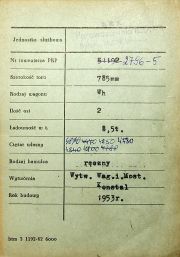 Jednostka służbowa
Nr inwentarza PKP 5 1192 2756-5
Szerokość toru 785mm
Rodzaj wagonu Wh
Ilość osi 2
Ładowność w t. 8,5t.
Ciężar własny 4250 4580
Rodzaj hamulca ręczny
Wytwórnia Wytw. Wag.i.Most.
Konstal
Rok budowy 1953r.